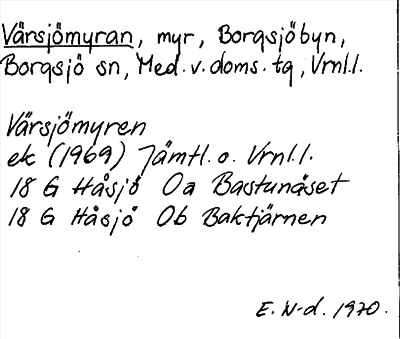 Värsjömyran, myr, Borgsjöbyn,
Borgsjö sn, Med.v.doms.tg, Vrnl.l.
Värsjömyren
ek (1969) Jämtl.o. Vrnl.l.
18 G Håsjö 0a Bastunäset
18 G Håsjö 0b Baktjärnen
E. N-d. 1970.